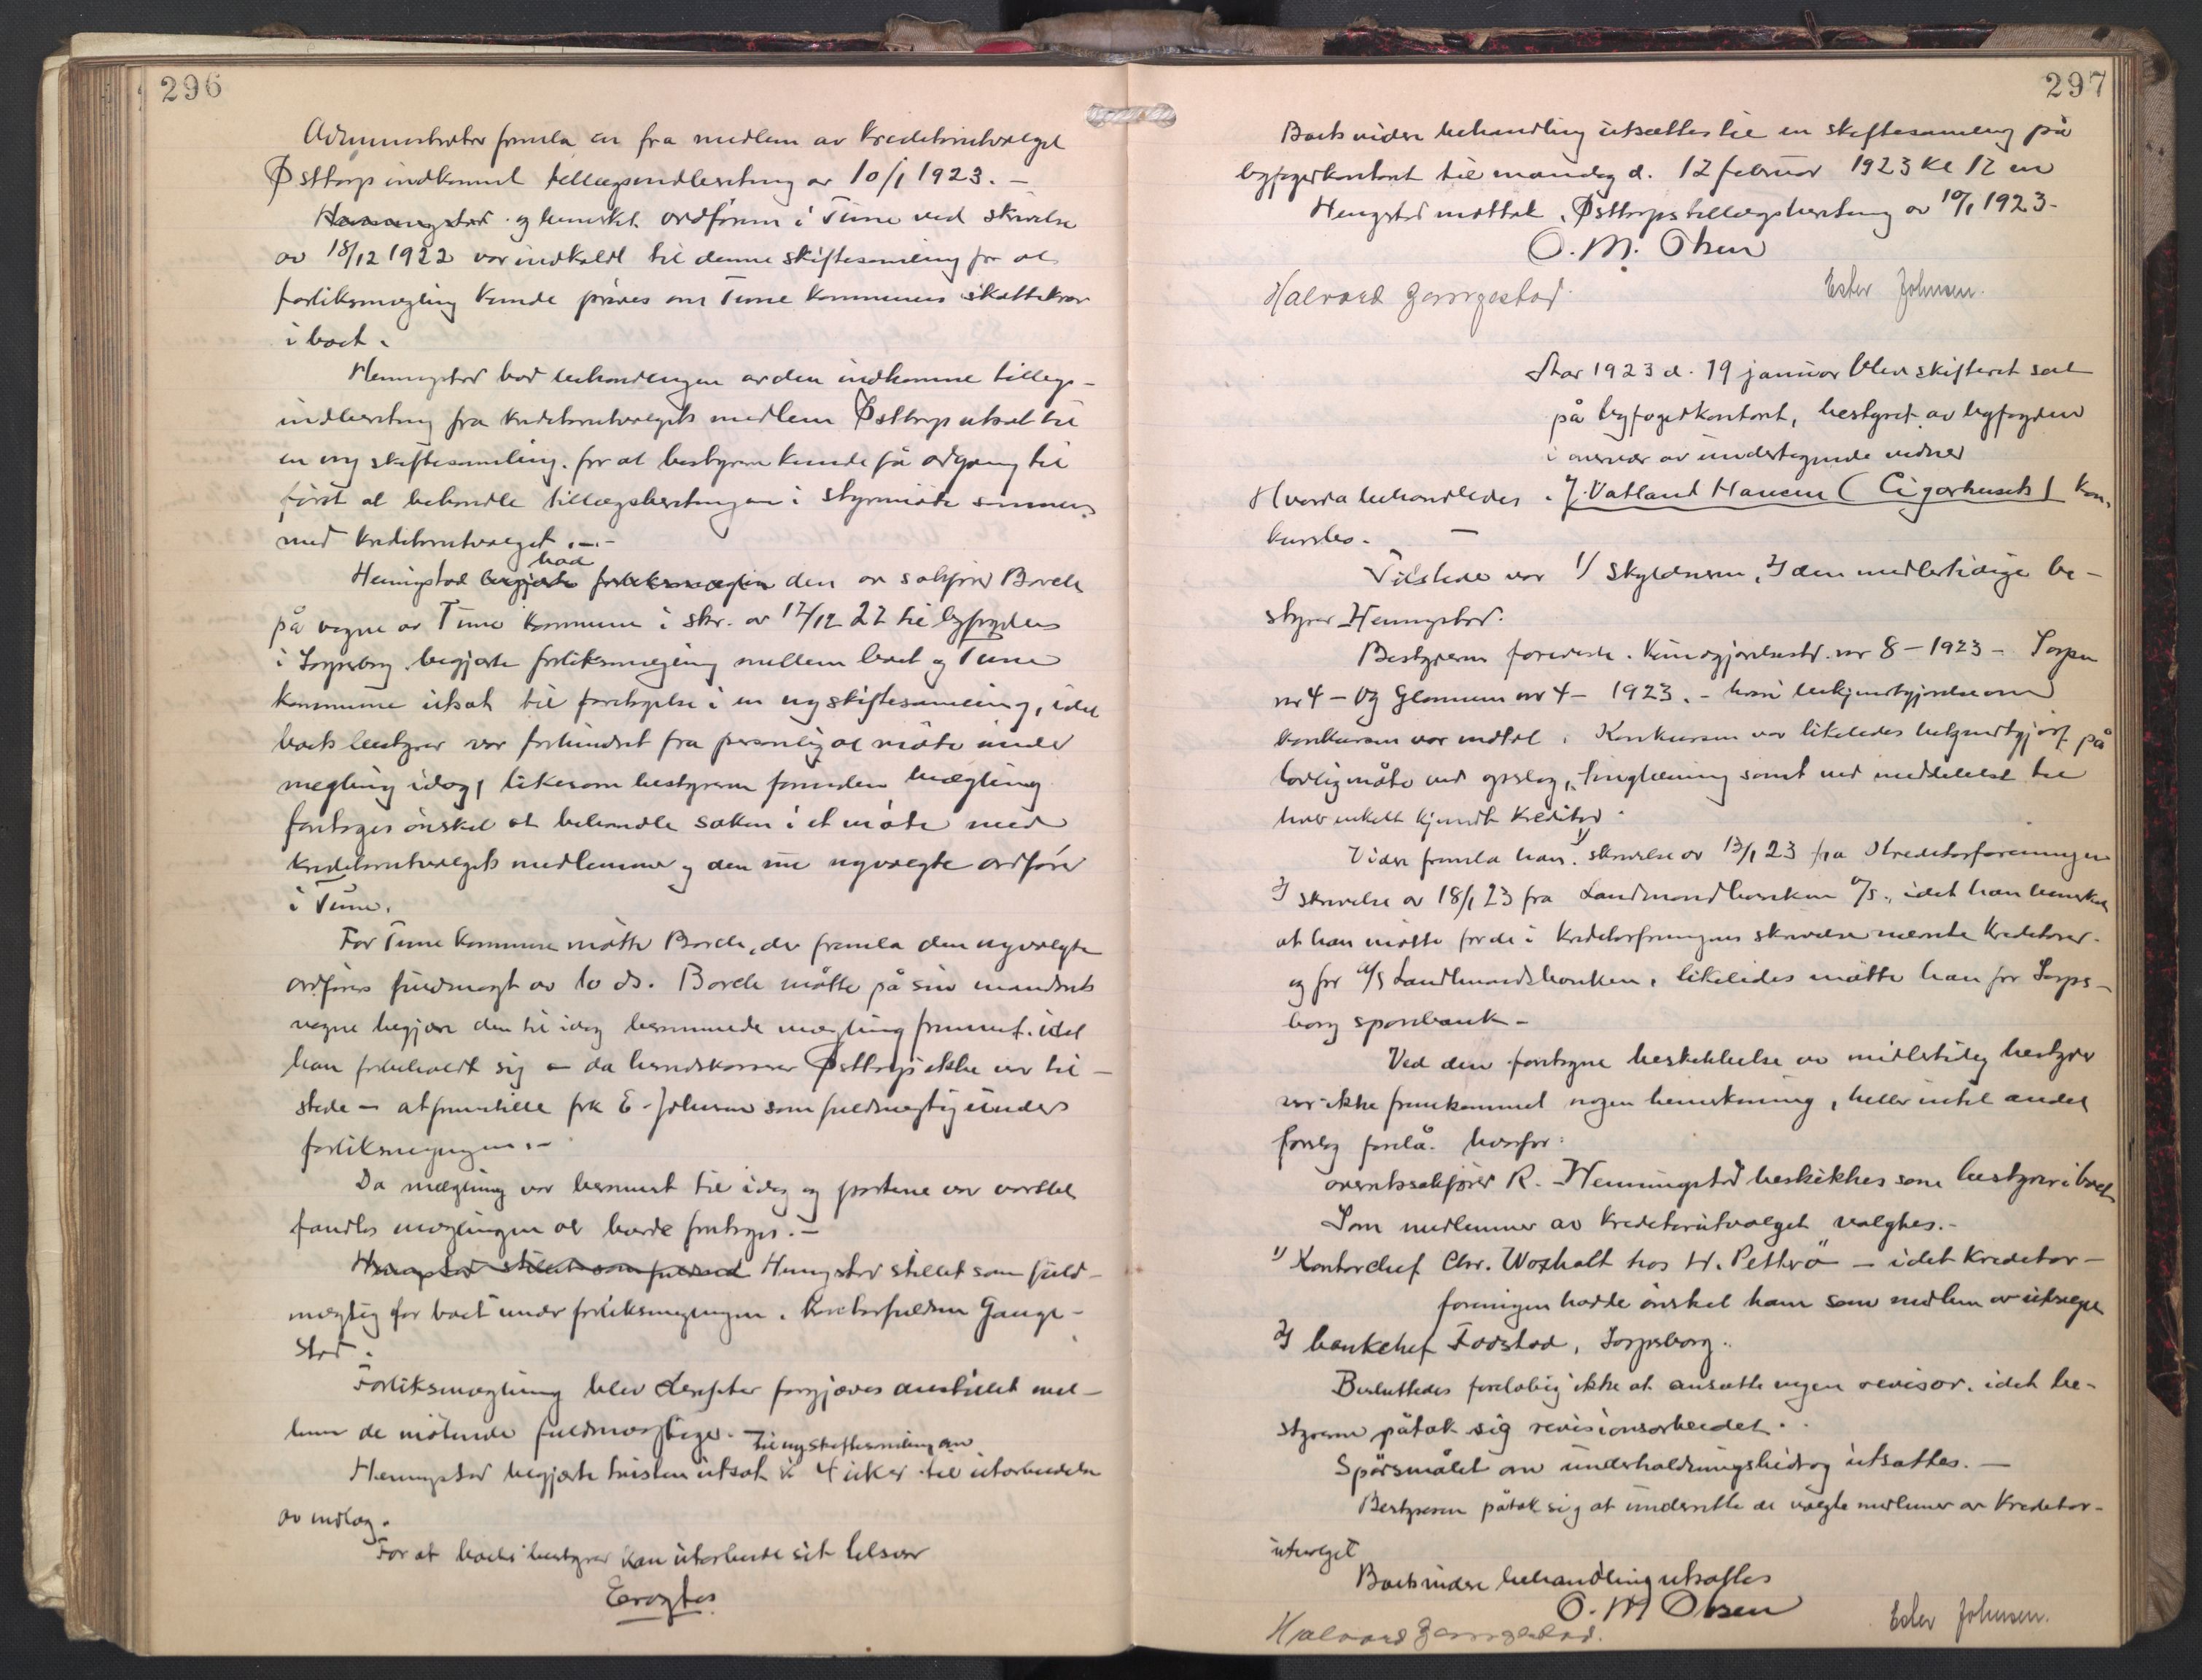 296
Administrator fremla en fra medlem av kreditorutvalget
Østtorp indkommet tillægsindberetning av 10/1 1923. –
Henningstad og bemerket ordføren i Tune ved skrivelse
av 18/12 1922 var indkaldt til denne skiftesamling for at
forliksmægling kunde prøves om Tune kommunes skattekrav
i boet.
Henningstad bad behandlingen av den indkomne tillægs-
indberetning fra kreditorutvalgets medlem Østtorp utsat til
en ny skiftesamling for at bestyreren kunde få adgang til
først at behandle tillægsberetningen i styremøte sammen
med kreditorutvalget. –
bad
Henningstad begjærte forliksmæglin den av sakfører Borch
på vegne av Tune kommune i skr. av 12/12 22 til byfogden
i Sarpsborg begjærte forliksmegling mellem boet og Tune
kommune utsat til foretagelse i en ny skiftesamling, idet
boets bestyrer var forhindret fra personlig at møte under
megling idag, likesom bestyreren forinden mægling
foretoges ønsket at behandle saken i et møte med
kreditorutvalgets medlemmer og den nu nyvalgte ordfører
i Tune.
For Tune kommune møtte Borch, der fremla den nyvalgte
ordførers fuldmagt av 10 ds. Borch måtte på sin mandants
vegne begjære den til idag berammede mægling fremmet. idet
han forbeholdt sig – da herredskasserer Østtorp ikke var til-
stede – at fremstille frk E. Johnsen som fuldmegtig under
forliksmeglingen. –
Da mægling var berammet til idag og partene var varslet
fandtes mæglingen at burde foretages. –
Henningstad stillet som fuldmæ Henningstad stillet som fuld-
mægtig for boet under forliksmeglingen. kontorfuldm Gauge-
stad.
Forliksmægling blev derefter forgjæves anstillet mel-
lem de møtende fuldmægtiger.
til ny skiftesamling om
Henningstad begjærte tvisten utsat i 4 uker til utarbeidelse
av indlæg.
For at boets bestyrer kan utarbeide sit tilsvar
Eragtes
297
Boets videre behandling utsættes til en skiftesamling på
byfogedkontoret til mandag d. 12 februar 1923 kl 12 em
Hengstad mottok Østtorps tillægsberetning av 10/1 1923.
O. M. Olsen
Halvard Gaugestad
Ester Johnsen.
Aar 1923 d. 19 januar blev skifteret sat
på byfogedkontoret, bestyret av byfogden
i overvær av undertegnede vidner
Hvorda behandledes J. Vatland Hansen (Cigarhuset) kon-
kursbo. –
Tilstede var 1/ skyldneren, 2/ den midlertidige be-
styrer Henningstad.
Bestyreren foreviste Kundgjørelsestid. nr 8 – 1923 – Sarpen
nr 4 – og Glommen nr 4 – 1923. – hvori bekjendtgjørelse om
konkursen var indtat. Konkursen var likeledes bekjendtgjort på
lovlig måte ved opslag, tinglæsning samt ved meddelelse til
hver enkelt kjendt kreditor.
Videre fremla han 1/ skrivelse av 13/1 23 fra Kreditorforeningen
2/ skrivelse av 18/1 23 fra Landmandsbanken A/S., idet han bemerket
at han møtte for de i Kreditorforeningens skrivelse nævnte kreditorer
og for A/S Landmandsbanken, likeledes møtte han for Sarps-
borg sparebank –
Ved den foretagne beskikkelse av midlertidig bestyrer
var ikke fremkommet nogen bemerkning, heller intet andet
forslag forelå. hvorfor:
overretssakfører R. Henningstad beskikkes som bestyrer i boet
Som medlemmer av kreditorutvalget valgtes. –
1/ Kontorchef Chr. Woxholt hos H. Petterø – idet kreditor-
foreningen hadde ønsket ham som medlem av utvalget
2/ bankchef Fadstad, Sarpsborg.
Besluttedes foreløbig ikke at ansætte nogen revisor, idet be-
styreren påtok sig revisionsarbeidet.
Spørsmålet om underholdningsbidrag utsattes. –
Bestyreren påtok sig at underrette de valgte medlemer av kreditor-
utvalget
Boets videre behandling utsattes
O. M Olsen
Halvard Gaugestad.
Ester Johnsen.